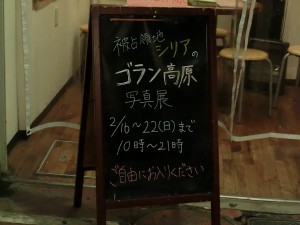 被占領地シリアの
ゴラン高原
写真展
2/16〜22(日)まで
10時〜21時
ご自由にお入りください